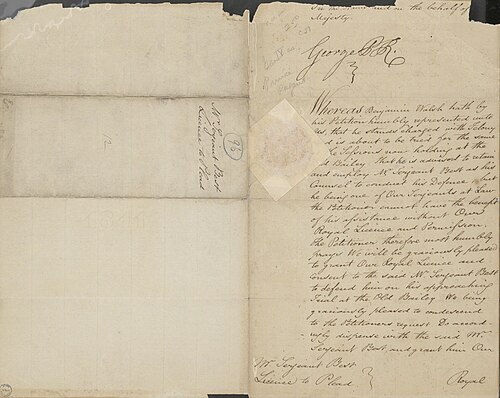 Mr. Serjeant Best
Licence to Plead
98
12
in the name and on the behalf of
Majesty.
George P.R.
Whereas Benjamin Walsh hath by
his Petition humbly represented unto
Us, that he stands charged with Felony
and is about to be tried for the same
Sessions now holding at the
Bailey, that he is advised to retain
and employ Mr. Serjeant Best as his
Counsel to conduct his Defence, but
he being one of Our Serjeants at Law
the Petitioner cannot have the benefit
of his assistance without Our
Royal Licence and Permission.
The Petitioner therefore most humbly
prays We will be graciously pleased
to grant Our Royal Licence and
Consent to the said Mr. Serjeant Best
to defend him on his approaching
Trial at the Old Bailey. We being
graciously pleased to condescend
to the Petitioners request Do accord-
-ingly dispense with the said Mr.
Serjeant Best and grant him Our
Mr. Serjeant Best
Licence to Plead
Royal